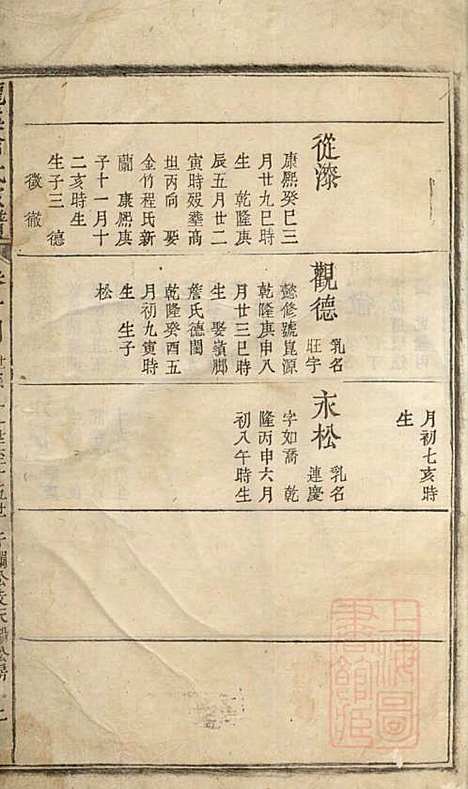 從漆
康熙癸巳三
月廿九巳時
生 乾隆庚
辰五月廿二
寅時歿葬高
坦丙向 娶
金竹程氏新
蘭 康熙庚
子十一月十
二亥時生
生子三 德
徵 徹
觀德
乳名
旺字
懿修號崑源
乾隆庚申八
月廿三巳時
生 娶嶺脚
詹氏德閨
乾隆癸酉五
月初九寅時
生 生子
松
月初七亥時
生
永松
乳名
連慶
字如喬 乾
隆丙申六月
初八午時生
上海圖
書館藏